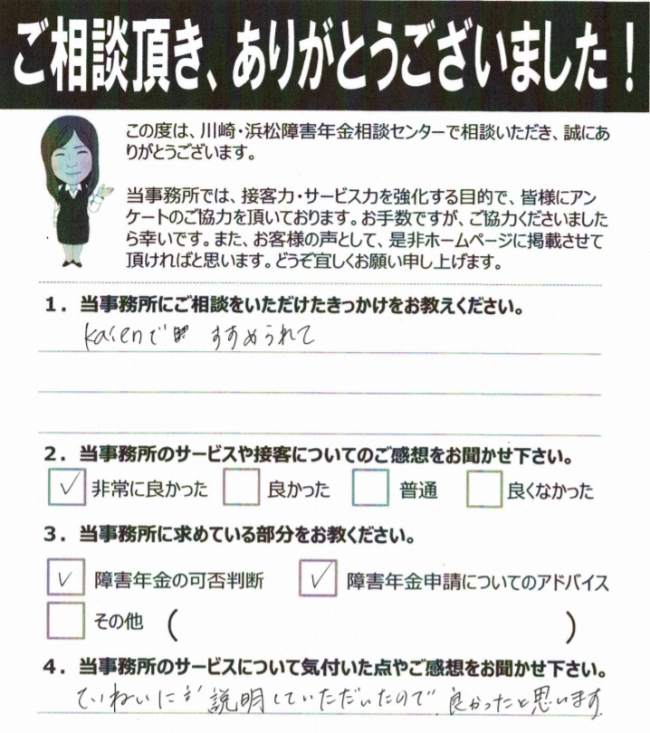 ご相談頂き、ありがとうございました！
この度は、川崎・浜松障害年金相談センターで相談いただき、誠にあ
りがとうございます。
当事務所では、接客力・サービス力を強化する目的で、皆様にアン
ケートのご協力を頂いております。お手数ですが、ご協力くださいました
ら幸いです。また、お客様の声として、是非ホームページに掲載させて
頂ければと思います。どうぞ宜しくお願い申し上げます。
1．当事務所にご相談をいただけたきっかけをお教えください。
Kaienで すすめられて
2．当事務所のサービスや接客についてのご感想をお聞かせ下さい。
✓ 非常に良かった 良かった 普通 良くなかった
3．当事務所に求めている部分をお教ください。
✓ 障害年金の可否判断 ✓ 障害年金申請についてのアドバイス
その他 ( )
4．当事務所のサービスについて気付いた点やご感想をお聞かせ下さい。
ていねいにご説明していただいたので良かったと思います